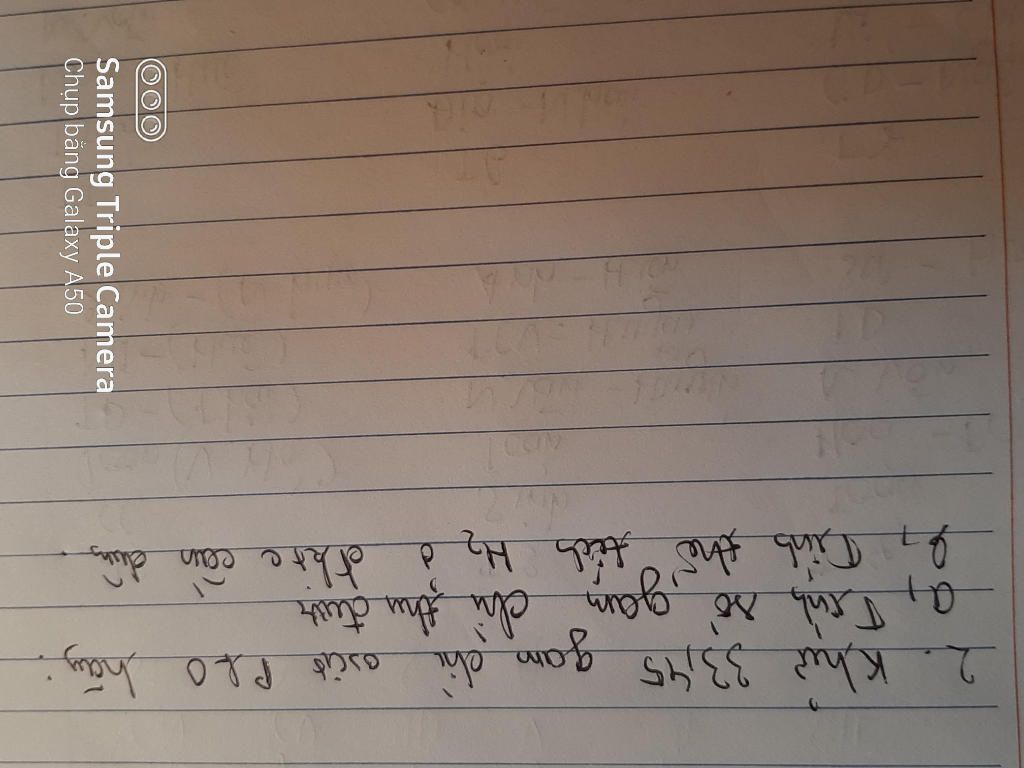 2. Khử 33,45 gam chì oxit PbO hãy:
a, Tính số gam chì thu được
b, Tính thể tích H2 ở đktc cần dùng.
Samsung Triple Camera
Chụp bằng Galaxy A50